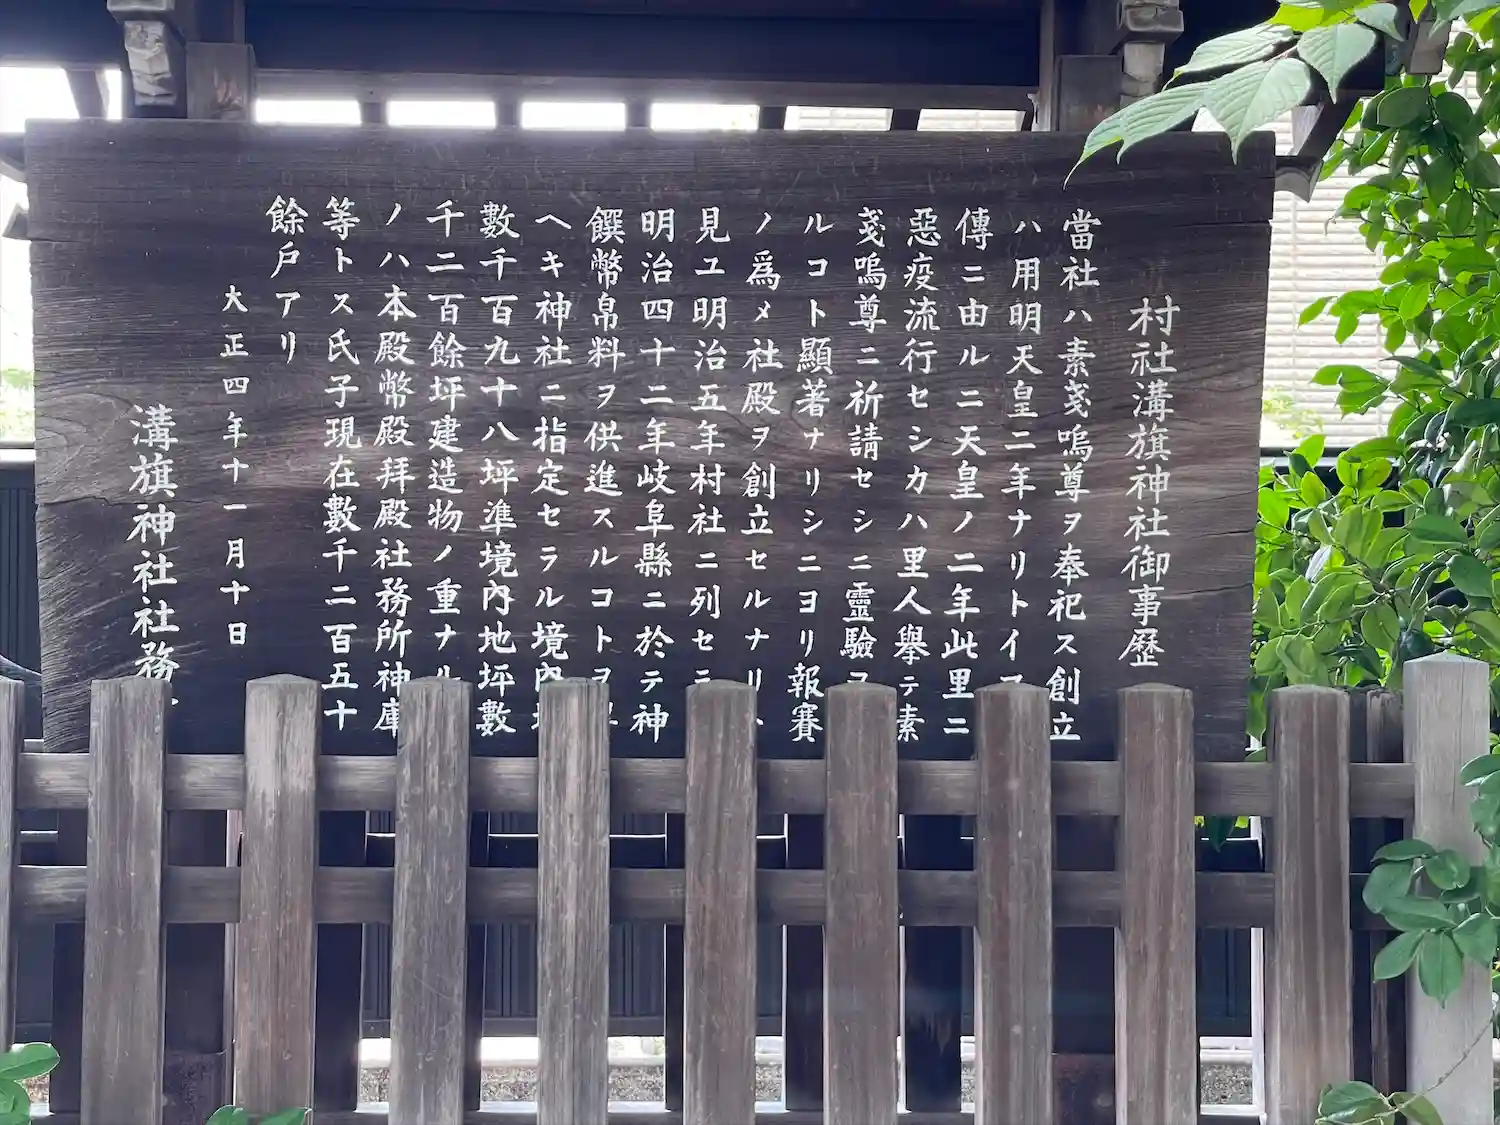 村社溝旗神社御事歴
當社ハ素戔嗚尊ヲ奉祀ス創立
ハ用明天皇二年ナリトイフ
傳ニ由ルニ天皇ノ二年此里ニ
惡疫流行セシカハ里人擧テ素
戔嗚尊ニ祈請セシニ靈驗ヲ
ルコト顯著ナリシニヨリ報賽
ノ爲メ社殿ヲ創立セルナリト
見ユ明治五年村社ニ列セラ
明治四十二年岐阜縣ニ於テ神
饌幣帛料ヲ供進スルコトヲ
ヘキ神社ニ指定セラル境內
數千百九十八坪準境內地坪數
千二百餘坪建造物ノ重ナル
ノハ本殿幣殿拜殿社務所神庫
等トス氏子現在數千二百五十
餘戶アリ
大正四年十一月十日
溝旗神社社務